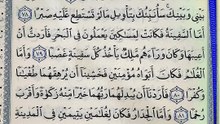 بَيْنِي وَبَيْنِكَ سَأُنَبِّئُكَ بِتَأْوِيلِ مَا لَمْ تَسْتَطِع عَّلَيْهِ صَبْرًا ﴿٧٨﴾
أَمَّا السَّفِينَةُ فَكَانَتْ لِمَسَاكِينَ يَعْمَلُونَ فِي الْبَحْرِ فَأَرَدتُّ أَنْ
أَعِيبَهَا وَكَانَ وَرَاءَهُم مَّلِكٌ يَأْخُذُ كُلَّ سَفِينَةٍ غَصْبًا ﴿٧٩﴾ وَأَمَّا
الْغُلَامُ فَكَانَ أَبَوَاهُ مُؤْمِنَيْنِ فَخَشِينَا أَن يُرْهِقَهُمَا طُغْيَانًا
وَكُفْرًا ﴿٨٠﴾ فَأَرَدْنَا أَن يُبْدِلَهُمَا رَبُّهُمَا خَيْرًا مِّنْهُ زَكَاةً وَأَقْرَبَ
رُحْمًا ﴿٨١﴾ وَأَمَّا الْجِدَارُ فَكَانَ لِغُلَامَيْنِ يَتِيمَيْنِ فِي الْمَدِينَةِ